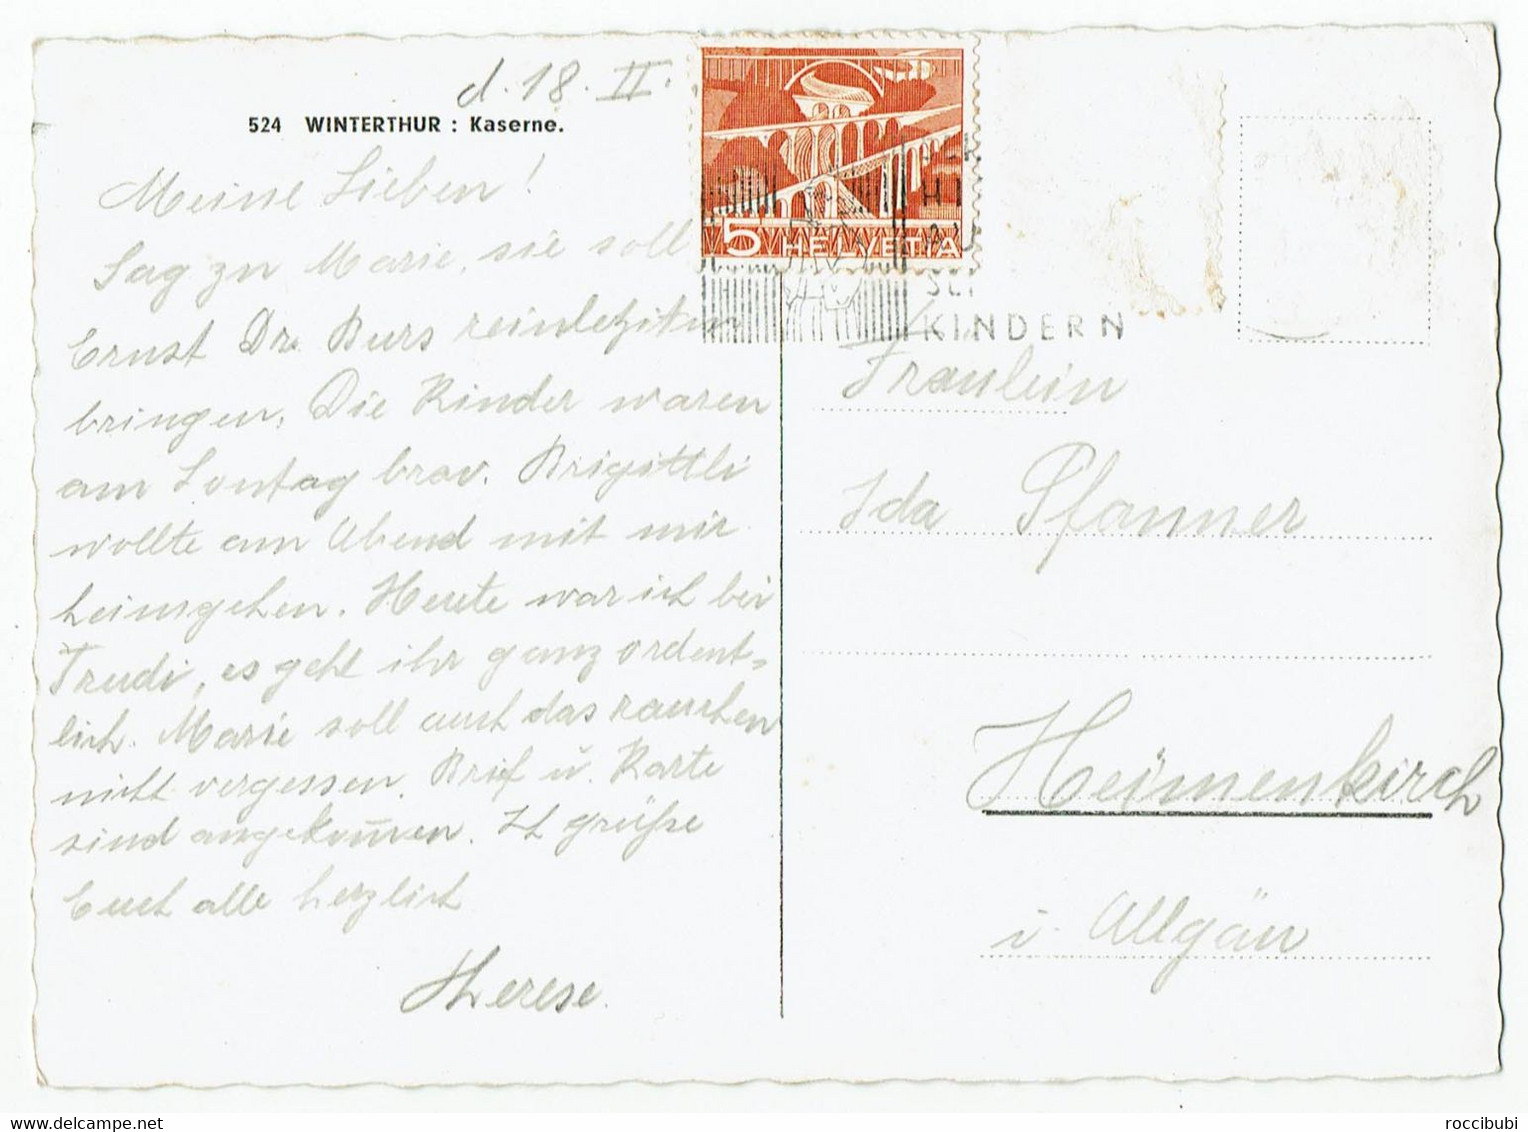 d. 18. II.
524 WINTERTHUR : Kaserne.
Meine Lieben!
Sag zu Marie, sie soll
Ernst Dr. Burs
bringen. Die Kinder waren
am Sontag brav. Brigittli
wollte am Abend mit mir
heimgehen. Heute war ich bei
Trudi, es geht ihr ganz ordent=
lich. Marie soll auch das rauchen
nicht vergessen. Brief u. Karte
sind angekom̅en. Ich grüße
Euch alle herzlich
Therese.
5 HELVETIA
HI
KINDERN
Fräulein
Ida Pfanner
Heimenkirch
i. Allgäu
roccibubi